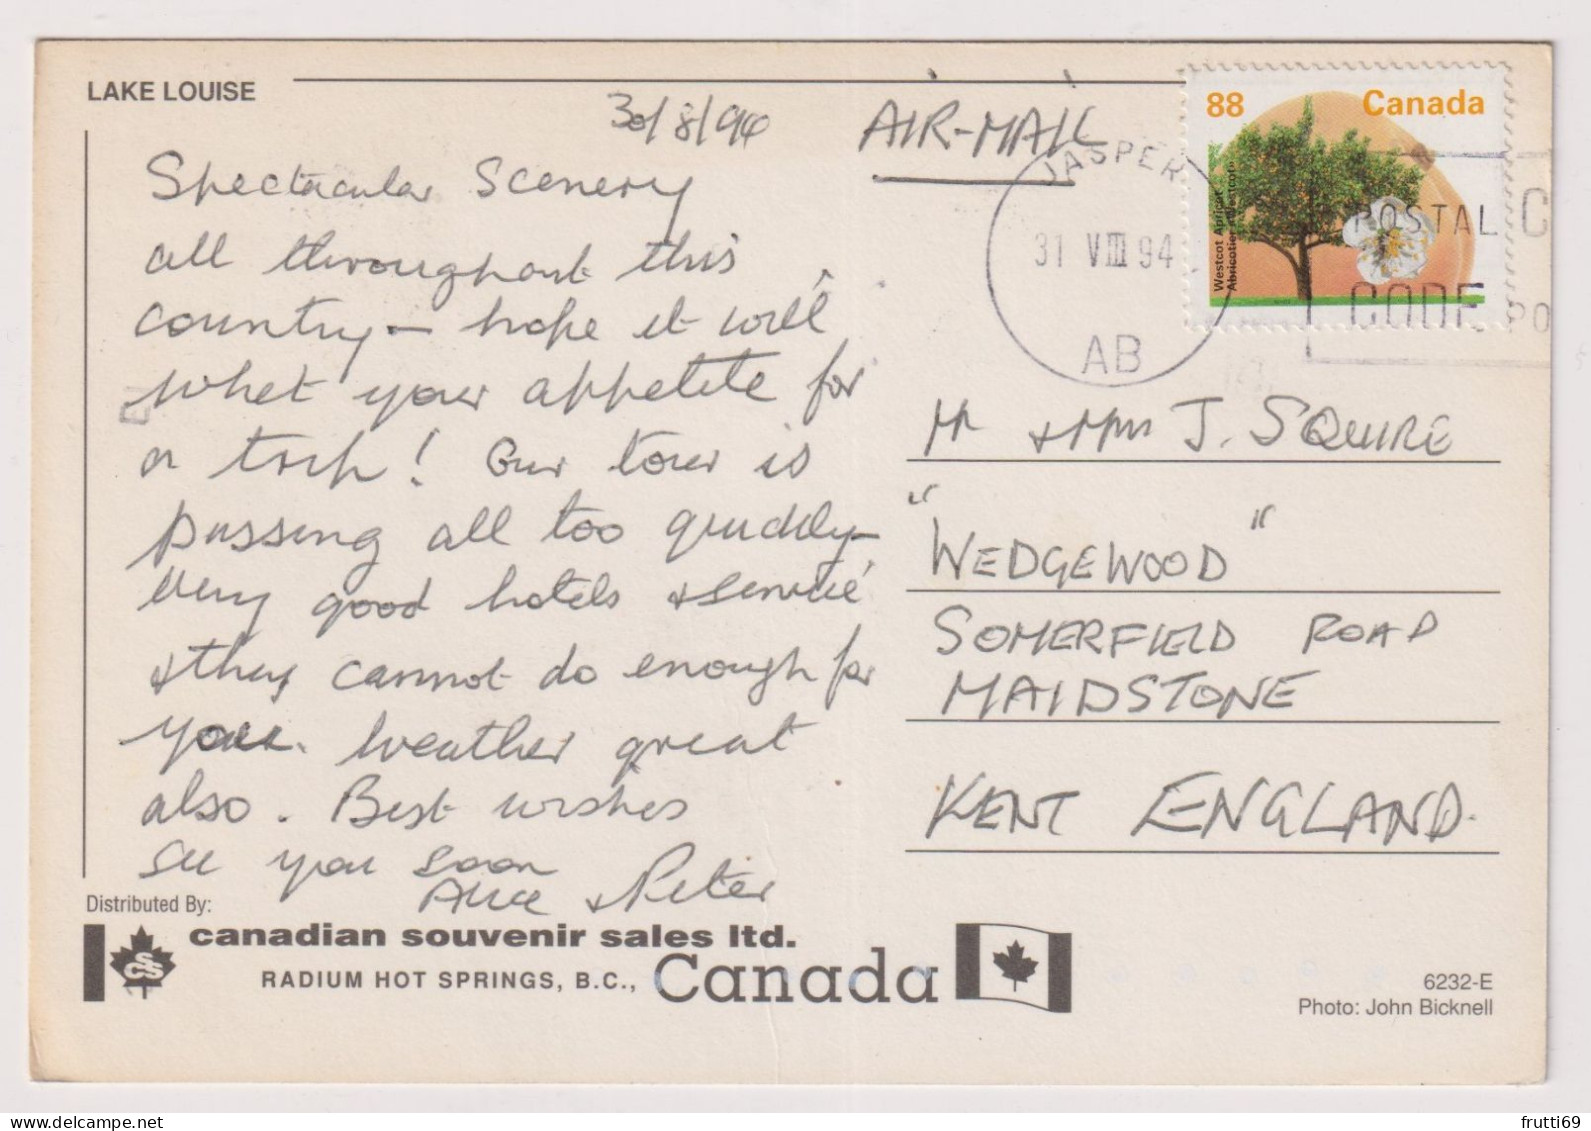 LAKE LOUISE
30/8/94
AIR-MAIL
Spectacular Scenery
all throughout this
country – hope it will
whet your appetite for
a trip! Our tour is
passing all too quickly –
very good hotels & service
& they cannot do enough for
you. Weather great
also. Best wishes
see you soon
Alice & Peter
88 Canada
Westcot Apricot
Abricotier Westcot
JASPER
31 VIII 94
AB
POSTAL C
CODE PO
Mr & Mrs J. SQUIRE
"WEDGEWOOD"
SOMERFIELD ROAD
MAIDSTONE
KENT ENGLAND.
Distributed By:
CSS
canadian souvenir sales ltd.
RADIUM HOT SPRINGS, B.C., Canada
6232-E
Photo: John Bicknell
delcampe.net
frutti69